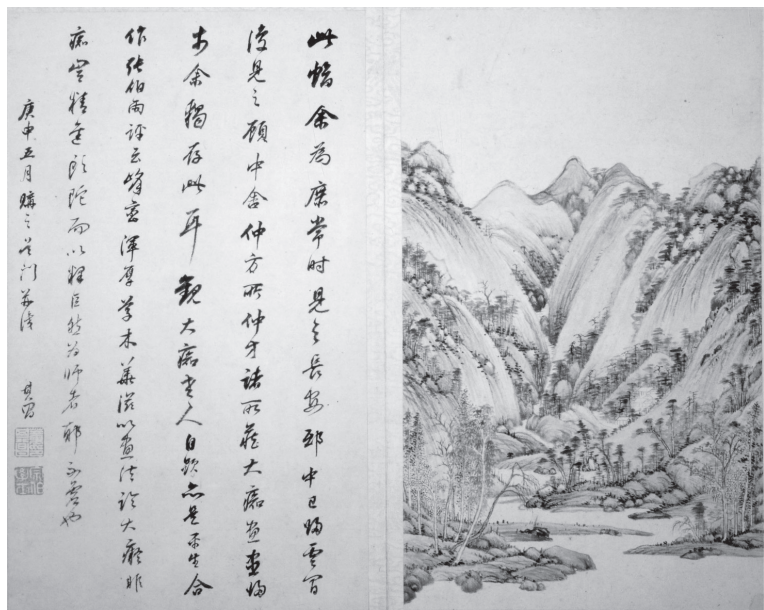 此幅余為庶常时見之長安邸中已歸雲間
復見之顧中舍仲方所仲方諸所藏大癡畫盡歸
於余獨存此耳觀大癡老人自題亦是平生合
作張伯雨評云峰巒渾厚草木華滋以畫法論大癡非
癡豈精進頭陀而以釋巨然為師者耶不虛也
庚申五月購之吳門並識
其昌